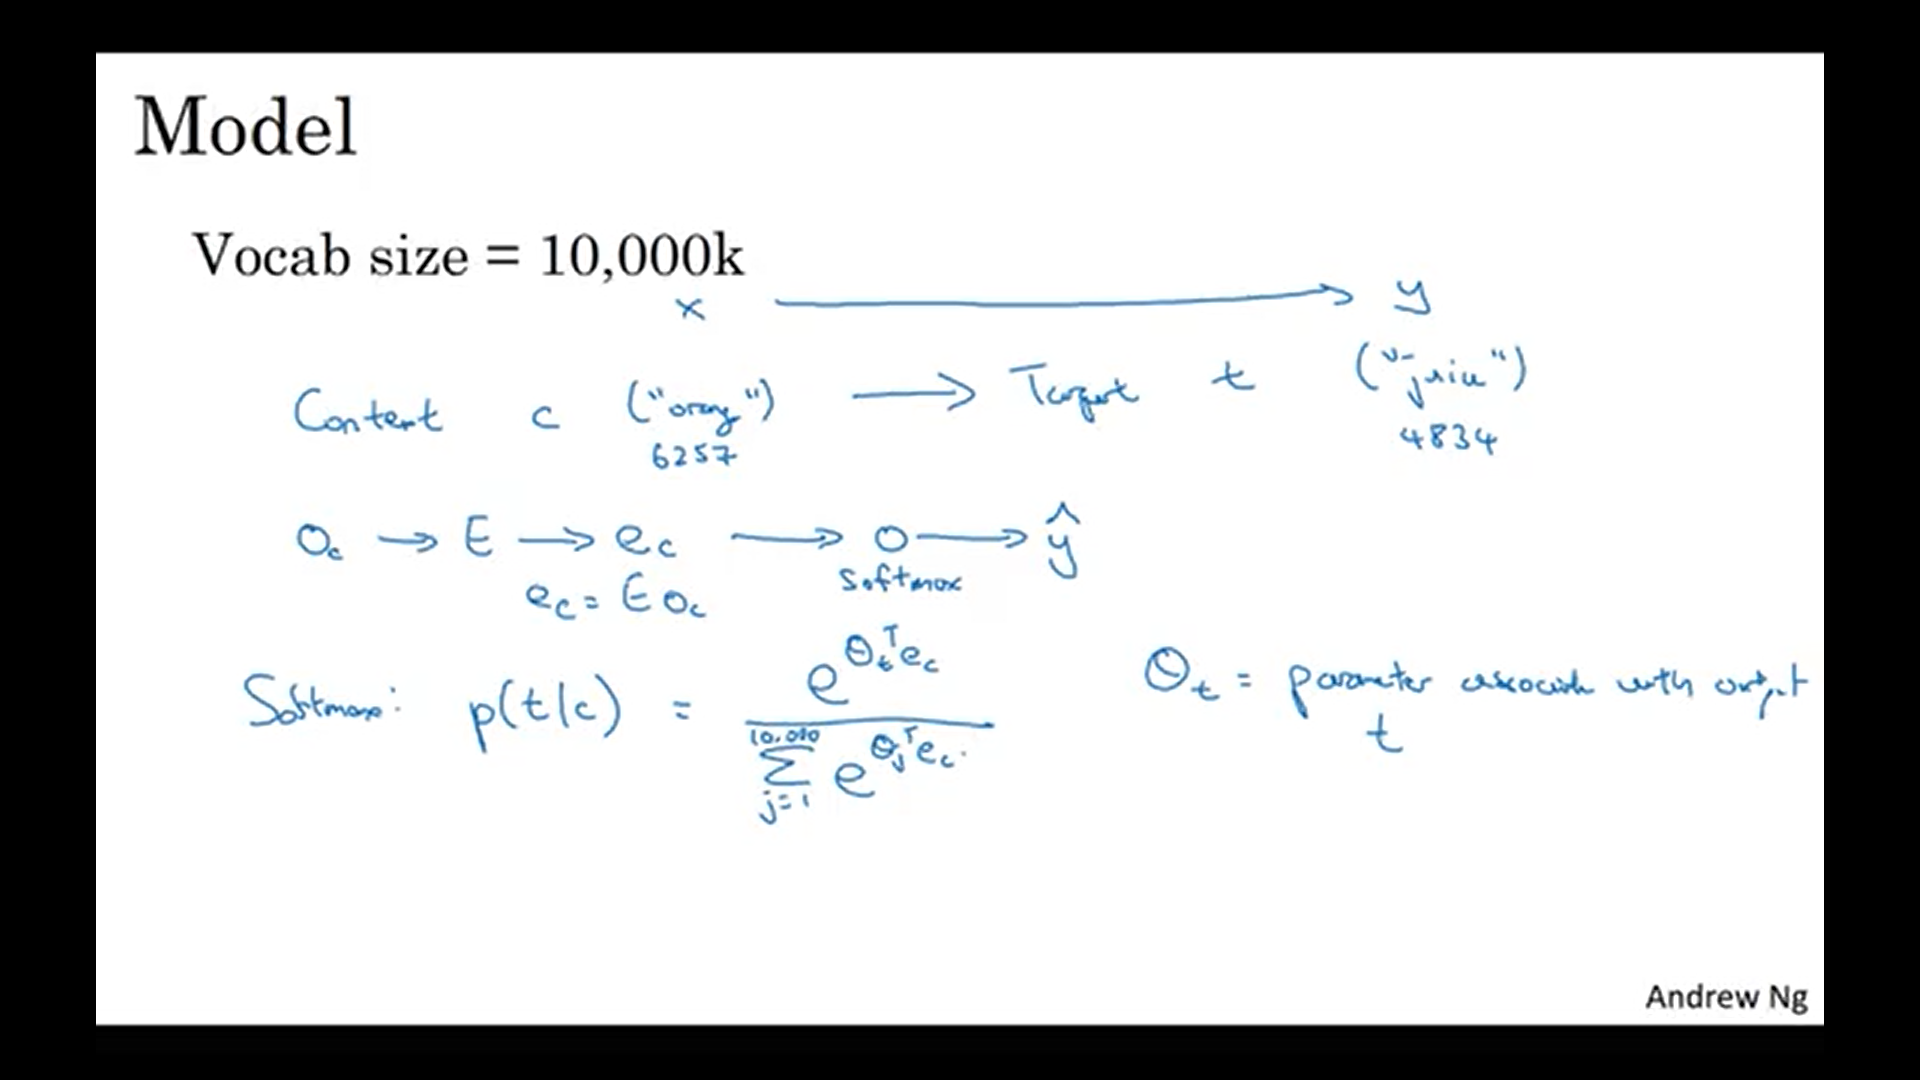 Model
Vocab size = 10,000k
x → y
Context c ("orange") → Target t ("juice")
6257 4834
O_c → E → e_c → o → ŷ
softmax
e_c = E o_c
Softmax: p(t|c) = e^{θ_t^T e_c} / Σ_{j=1}^{10,000} e^{θ_j^T e_c}
θ_t = parameter associated with output
t
Andrew Ng